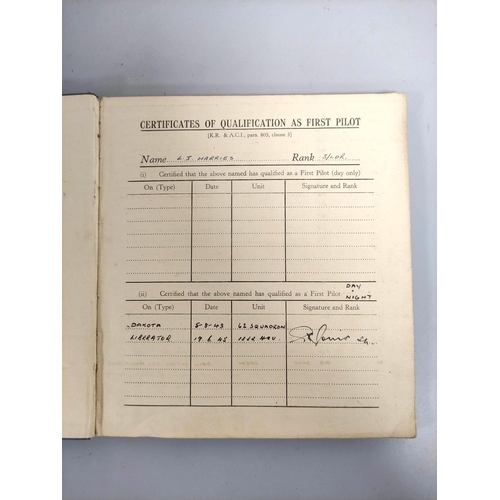 CERTIFICATES OF QUALIFICATION AS FIRST PILOT
[K.R. & A.C.I., para. 803, clause 5]
Name L J. HARRIES Rank S/LDR.
(i) Certified that the above named has qualified as a First Pilot (day only)
On (Type) Date Unit Signature and Rank
(ii) Certified that the above named has qualified as a First Pilot DAY + NIGHT
On (Type) Date Unit Signature and Rank
DAKOTA 5-8-43 62 SQUADRON
LIBERATOR 19 6 45